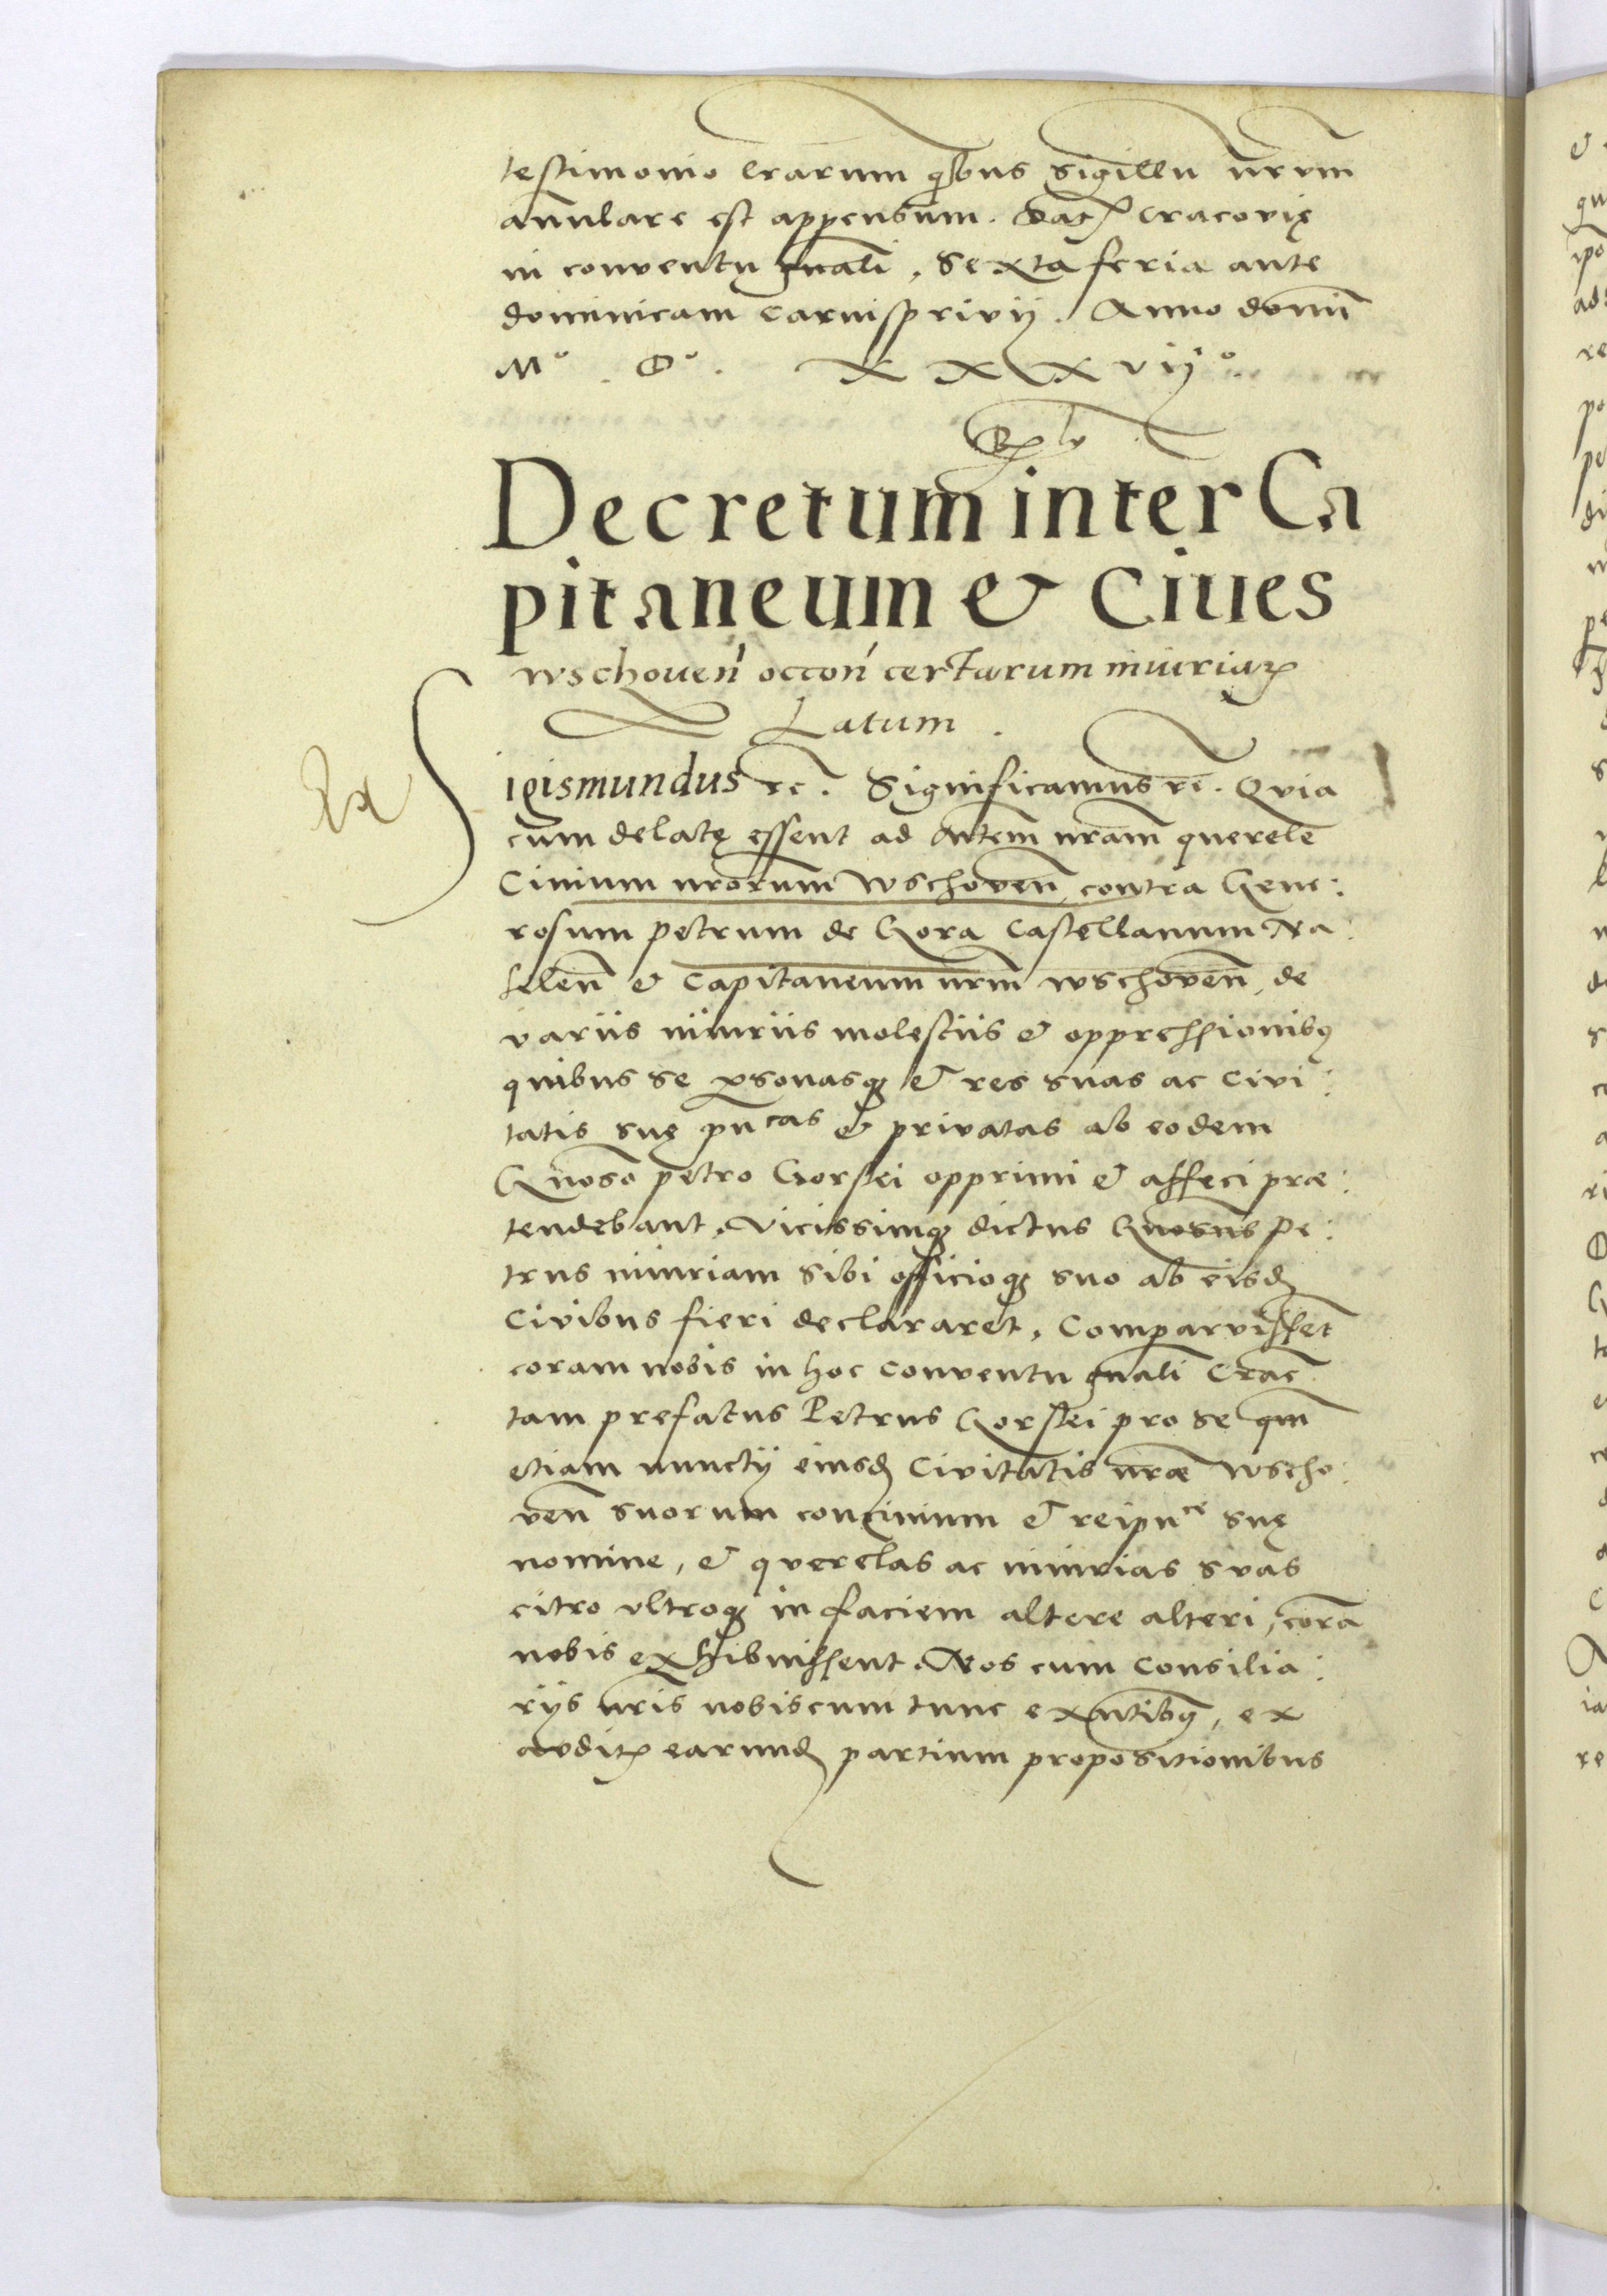 testimonio lrarum quibus sigillu nrvm
annulare est appensum. Dat Cracovię
in conventu gnali, Sexta feria ante
dominicam carnisprivij. Anno domi
Mº. Dº. XXXvijº.
Decretum inter Ca
pitaneum & Ciues
wschouen occon certarum iniuriar
Latum.
Ex
Sigismundus rc. Significamus rc. Quia
cum delatę essent ad Mtem nram querele
Ciuium nrorum Wschoven contra Gene:
rosum petrum de Gora Castellanum Na:
kelen & Capitaneum nrm wschoven, de
variis iniuriis molestiis & oppressionibq
quibus se personasq & res suas ac civi:
tatis suę pucas & privatas ab eodem
Gnoso petro Gorskei opprimi & affeci præ:
tendebant. Vicissimq dictus Gnosus Pe:
trus iniuriam sibi officioq suo ab eisd
Civibus fieri declararet, Comparvisset
coram nobis in hoc Conventu gnali Crac
tam prefatus Petrus Gorskei pro se qm
etiam nunctij eiusd Civitatis nræ Wscho:
ven suorum concivium & reipuce suę
nomine, & querelas ac iniurias suas
citro vltroq in faciem altere alteri, cora
nobis exhibuissent. Nos cum Consilia:
rijs nris nobiscum tunc exntibq, ex
audit earund partium propositionibus